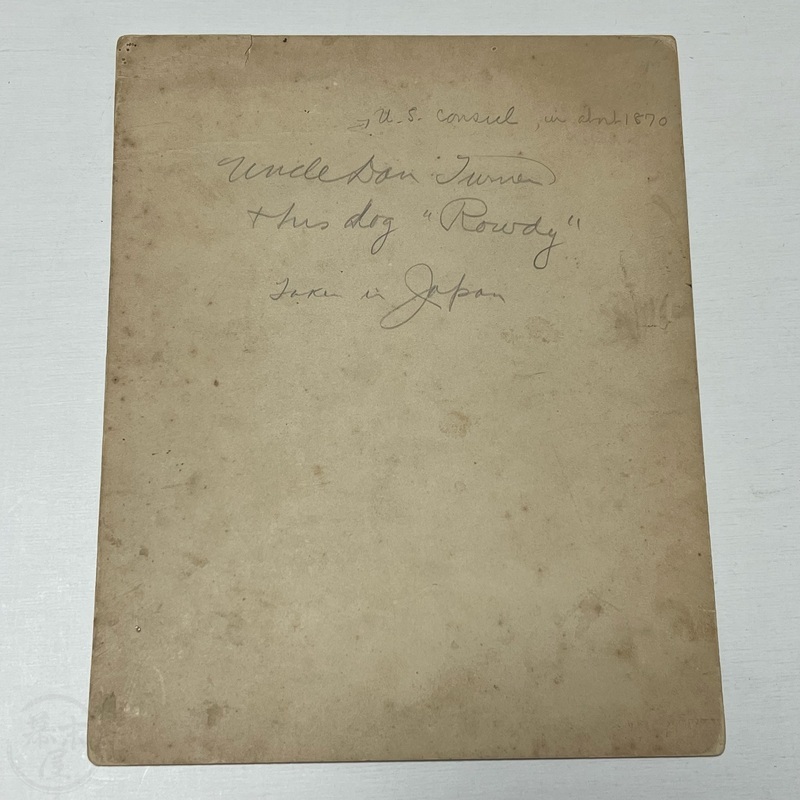 U.S. Consul, in about 1870
Uncle Dan Turner
+ his dog "Rowdy"
Taken in Japan
幕末屋